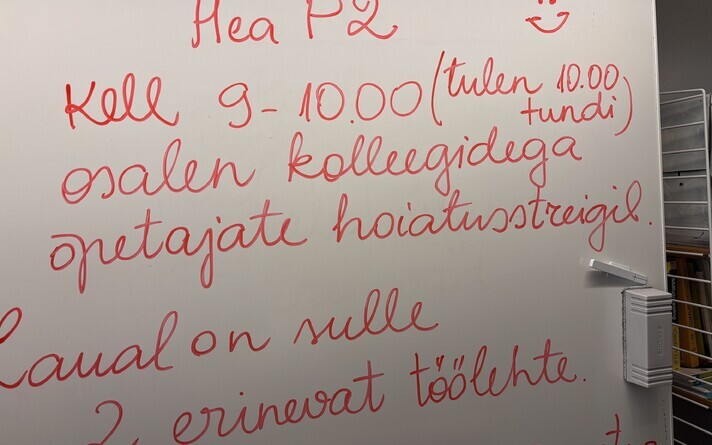 Hea P2
Kell 9-10.00 (tulen 10.00 tundi)
osalen kolleegidega
õpetajate hoiatusstreigil.
Laual on sulle
2 erinevat töölehte.